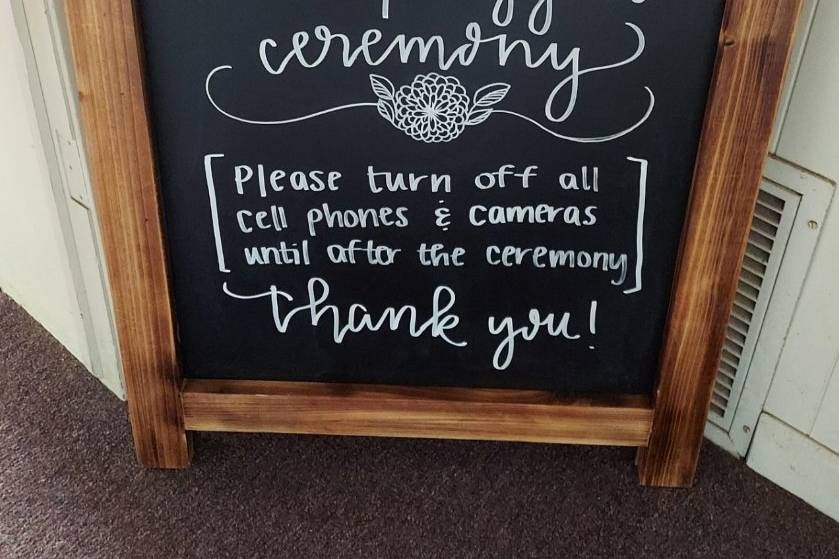 ceremony
Please turn off all
cell phones & cameras
until after the ceremony
thank you!